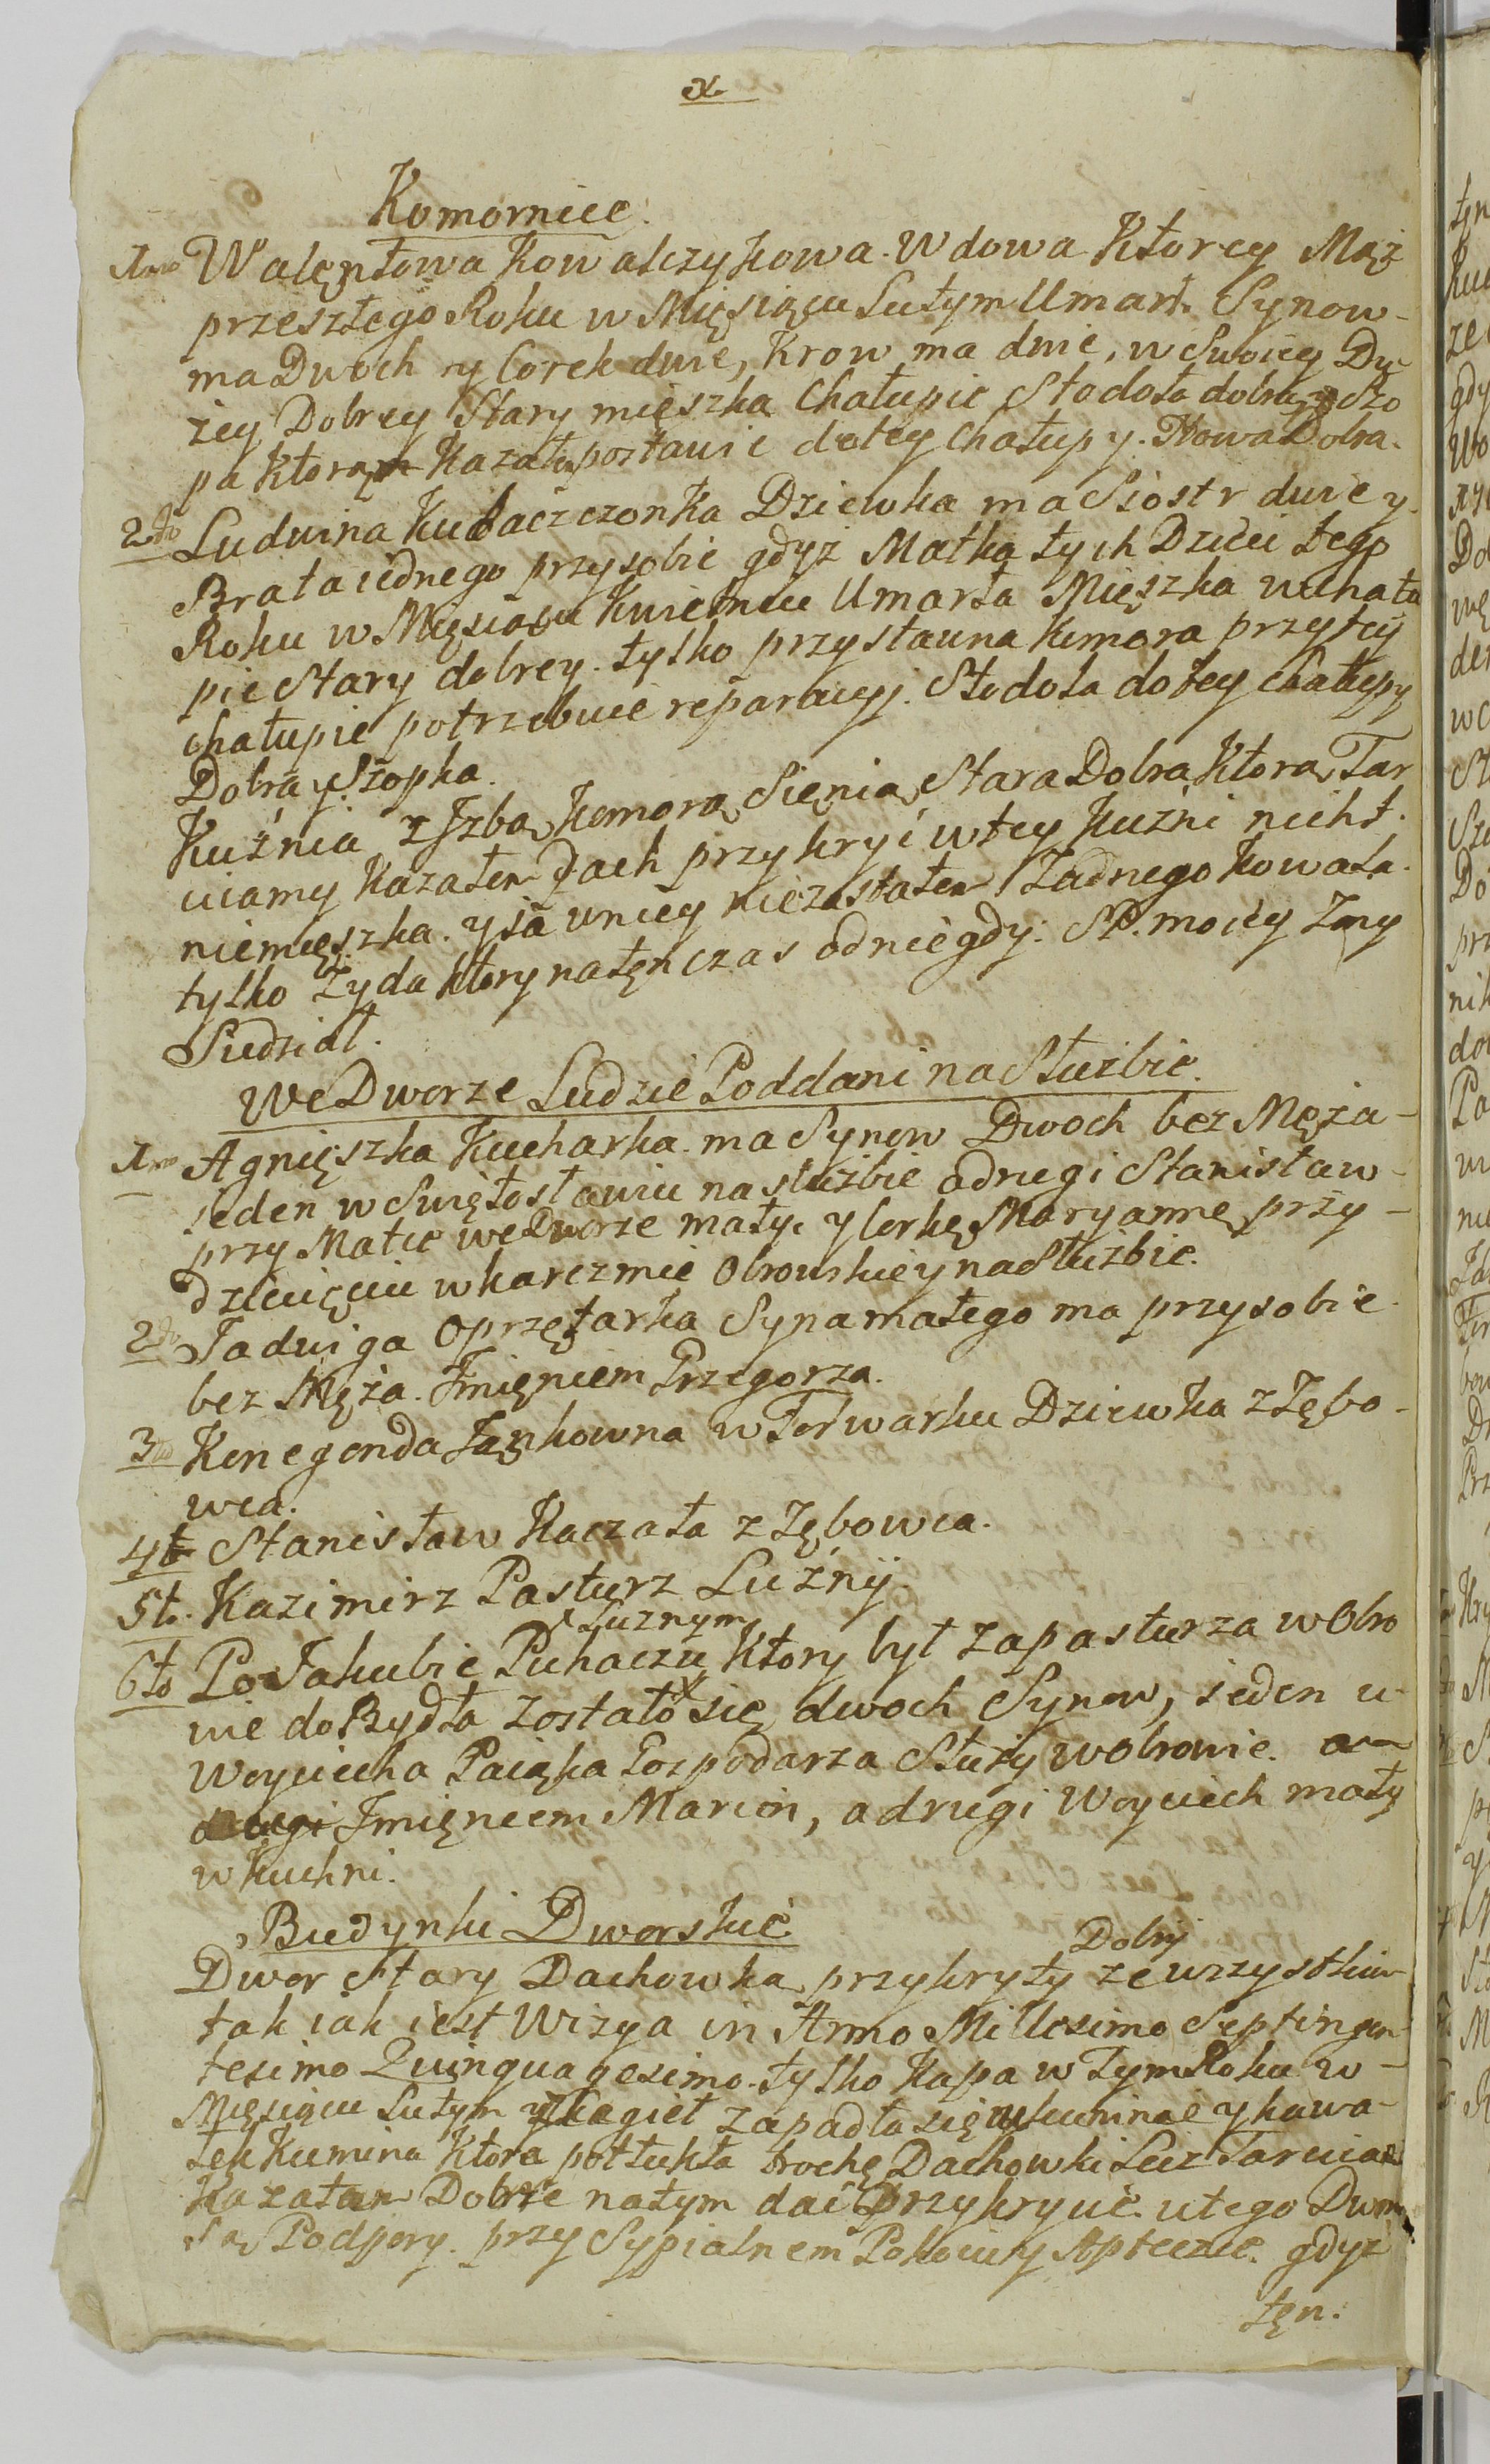 x
Komornice.
1mo Walętowa Kowalczykowa. Wdowa Ktorey Mąż
przeszłego Roku w Mięsiącu Lutym Umarł. Synow-
ma Dwoch y Corek dwie, Krow ma dwie, w Swoiey Du-
żey Dobrey Stary mięszka Chałupie Stodoła dobra, y Szo
pa Ktorą Kazała postawic do tey Chałupy. Nowa Dobra.
2do Ludwina Kubaczczonka Dziewka ma Siostr dwie y.
Brata iednego przy sobie gdyż Matka tych Dzieci tego
Roku w Mięsiącu Kwietniu Umarła Mięszka w Chału
pie Stary dobrey. tylko przystawna Komora przy tey
chałupie potrzebuie reparacyj. Stodoła do tey chałupy
Dobra y Szopka.
Kuźnia z Izbą, Komorą, Sięnią, Stara Dobra Ktora, Tar
ciamy Kazałem Dach przykryć w tey Kuźni nicht.
niemięszka. y ia wniey niezastałem Żadnego Kowala.
tylko Żyda ktory natęn czas odniegdy. SP. moiey Żony
Siedział.
We Dworze Ludzie Poddani na Służbie.
1mo Agnięszka Kucharka. ma Synow Dwoch bez Męża-
ieden w Swiętosławiu na służbie a drugi Stanisław-
przy Matce we Dworze mały, y Corkę Maryannę, przy-
dziecięciu w karczmie Obrowskiey na Służbie.
2do Jadwiga Oprzętarka Syna małego ma przy sobie
bez Męża. Imięniem Grzegorza.
3tio Konegonda Jankowna w Folwarku Dziewka z Zębo-
wca.
4to Stanisław Kaczała z Zębowca.
5to. Kazimirz Pasturz Luźnij.
x Luznym
6to Po Jakubie Puhaczu Ktory był za pasturza w Obro
wie do Bydła zostało x się, dwoch Synow, ieden u-
Woyciecha Paiąka Gospodarza Służy w Obrowie. a
drugi Imięniem Marcin, a drugi Woyciech mały
w Kuchni.
Budynki Dworskie.
Dobrij
Dwor Stary Dachowką, przykryty ze wszystkim
tak iak iest Wizya in Anno Millesimo Septingen-
tesimo Quinquagesimo. tylko Kapa w Tym Roku w-
Mięsiącu Lutym zapadła się w kuminie y kawa-
łek Kumina Ktora potłukła trochę Dachowki Lecz Tarcicami
Kazałem Dobrze natym dać Przykrycie. u tego Dworu
Są, Podpory. przy Sypialnem Pokoiu y Apteczce. gdyż
tęn.